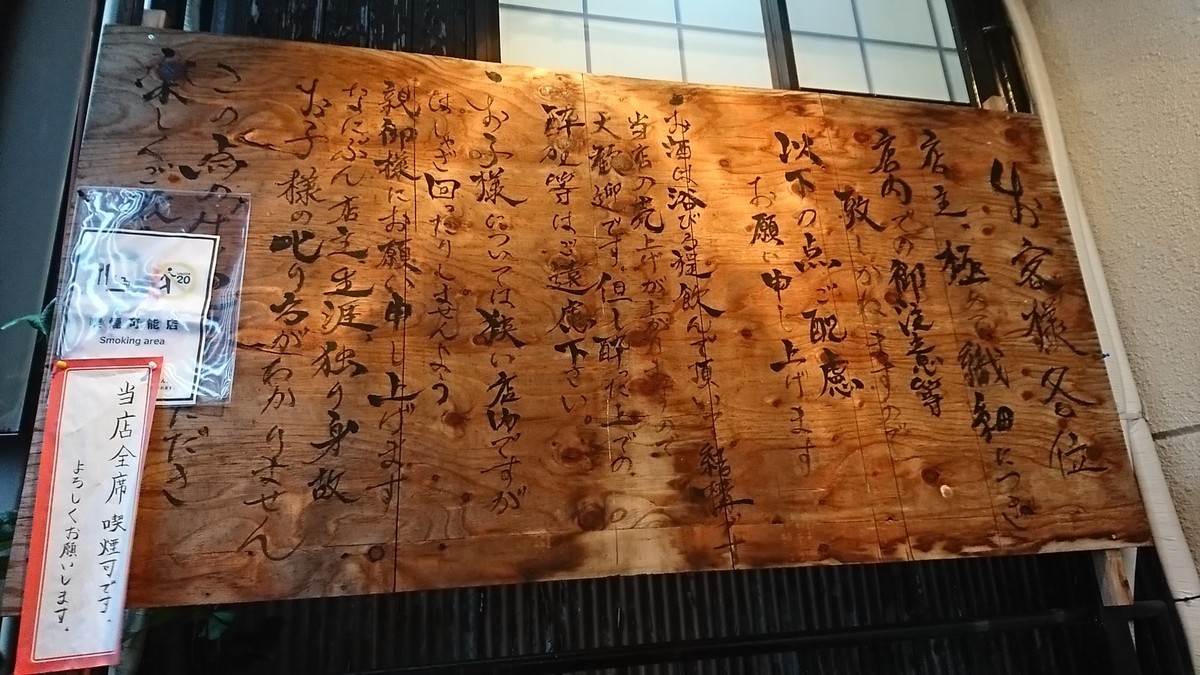 お客様各位
店主、極めて繊細につき
店内での御注意等
致しかねますので
以下の点ご配慮
お願い申し上げます
・お酒は浴びる程飲んで頂いて結構です
当店の売上げが上がりますので
大歓迎です。但し酔った上での
酔狂等はご遠慮下さい。
・お子様については狭い店内ですが
はしゃぎ回ったりしませんよう。
親御様にお願い申し上げます
なにぶん店主生涯独り身故
お子様の叱り方がわかりません
この点のみ
楽しくご だき
喫煙可能店
Smoking area
20
当店全席喫煙可です。
よろしくお願いします。